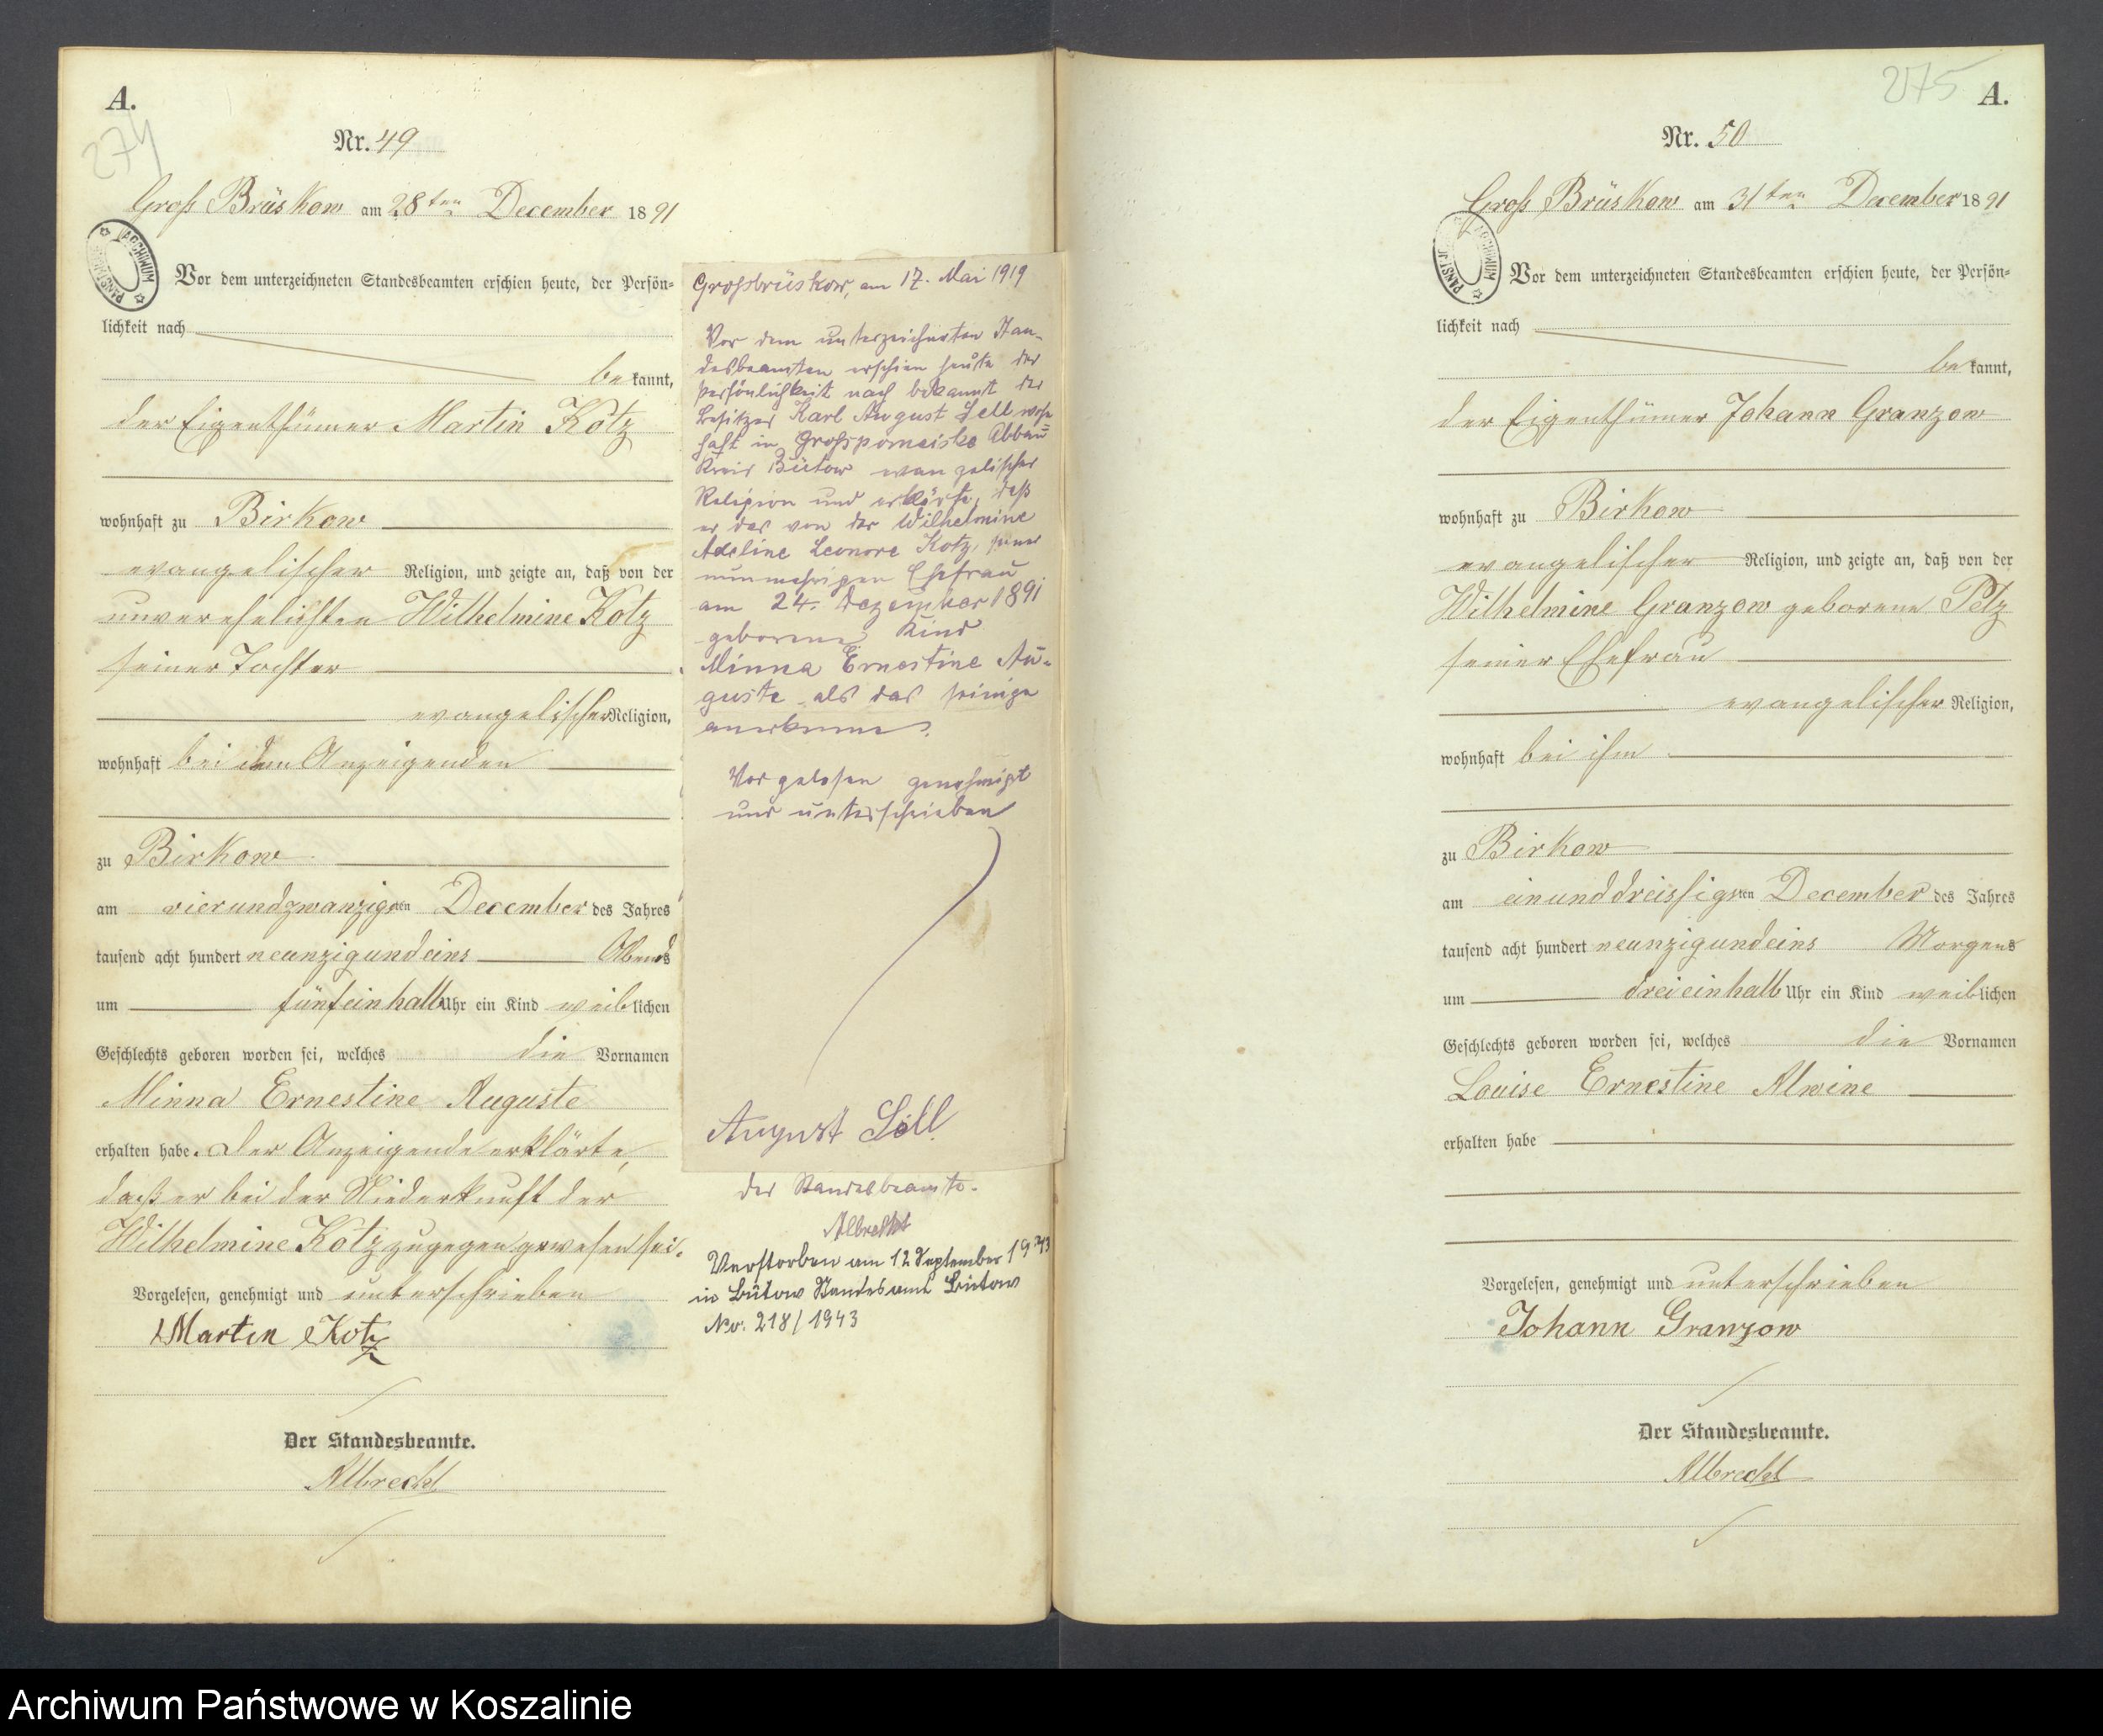 A.
274
Nr. 49
Groß Brüskow am 28ten December 1891
ARCHIWUM PAŃSTWOWE
Vor dem unterzeichneten Standesbeamten erschien heute, der Persön-
lichkeit nach
bekannt,
der Eigenthümer Martin Kotz
wohnhaft zu Birkow
evangelischer Religion, und zeigte an, daß von der
unverehelichten Wilhelmine Kotz
seiner Tochter
evangelischer Religion,
wohnhaft bei dem Anzeigenden
zu Birkow
am vierundzwanzigsten December des Jahres
tausend acht hundert neunzigundeins Abends
um fünfeinhalb Uhr ein Kind weiblichen
Geschlechts geboren worden sei, welches die Vornamen
Minna Ernestine Auguste
erhalten habe. Der Anzeigende erklärte,
daß er bei der Niederkunft der
Wilhelmine Kotz zugegen gewesen sei.
Vorgelesen, genehmigt und unterschrieben
Martin Kotz
Der Standesbeamte.
Albrecht
Großbrüskow, am 17. Mai 1919
Vor dem unterzeichneten Stan-
desbeamten erschien heute der
Persönlichkeit nach bekannt der
Besitzer Karl August Sell wohn
haft in Großpomeiske Abbau
Kreis Bütow evangelischer
Religion und erklärte, daß
er das von der Wilhelmine
Adeline Leonore Kotz, seiner
nunmehrigen Ehefrau
am 24. Dezember 1891
geborene Kind
Minna Ernestine Au-
guste als das seinige
anerkenne.
Vorgelesen genehmigt
und unterschrieben
August Sell
Der Standesbeamte.
Albrecht
Verstorben am 12 September 1943
in Bütow Standesamt Bütow
No. 218/1943
275
A.
Nr. 50
Groß Brüskow am 31ten December 1891
ARCHIWUM PAŃSTWOWE
Vor dem unterzeichneten Standesbeamten erschien heute, der Persön-
lichkeit nach
bekannt,
der Eigenthümer Johann Granzow
wohnhaft zu Birkow
evangelischer Religion, und zeigte an, daß von der
Wilhelmine Granzow geborene Petz
seiner Ehefrau
evangelischer Religion,
wohnhaft bei ihm
zu Birkow
am einunddreissigsten December des Jahres
tausend acht hundert neunzigundeins Morgens
um dreieinhalb Uhr ein Kind weiblichen
Geschlechts geboren worden sei, welches die Vornamen
Louise Ernestine Alwine
erhalten habe
Vorgelesen, genehmigt und unterschrieben
Johann Granzow
Der Standesbeamte.
Albrecht
Archiwum Państwowe w Koszalinie